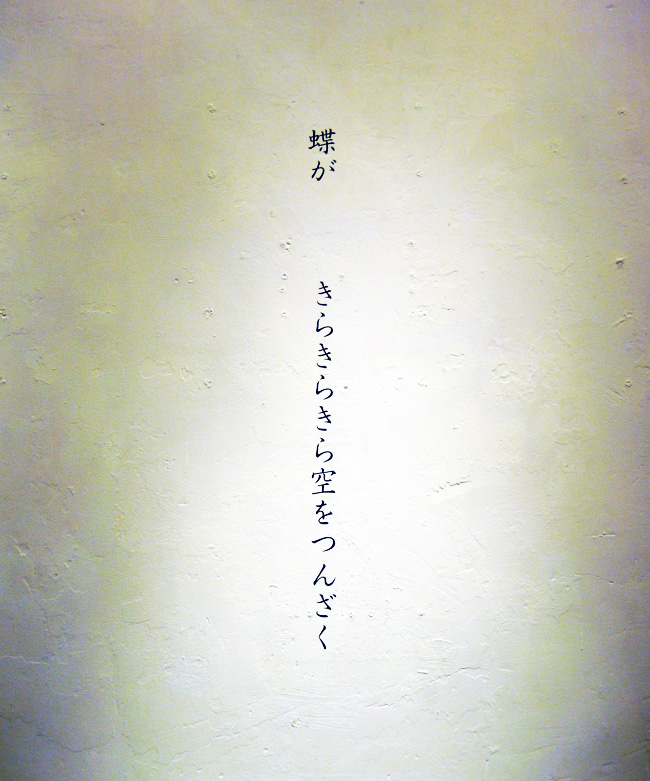 蝶が　　　きらきらきら空をつんざく